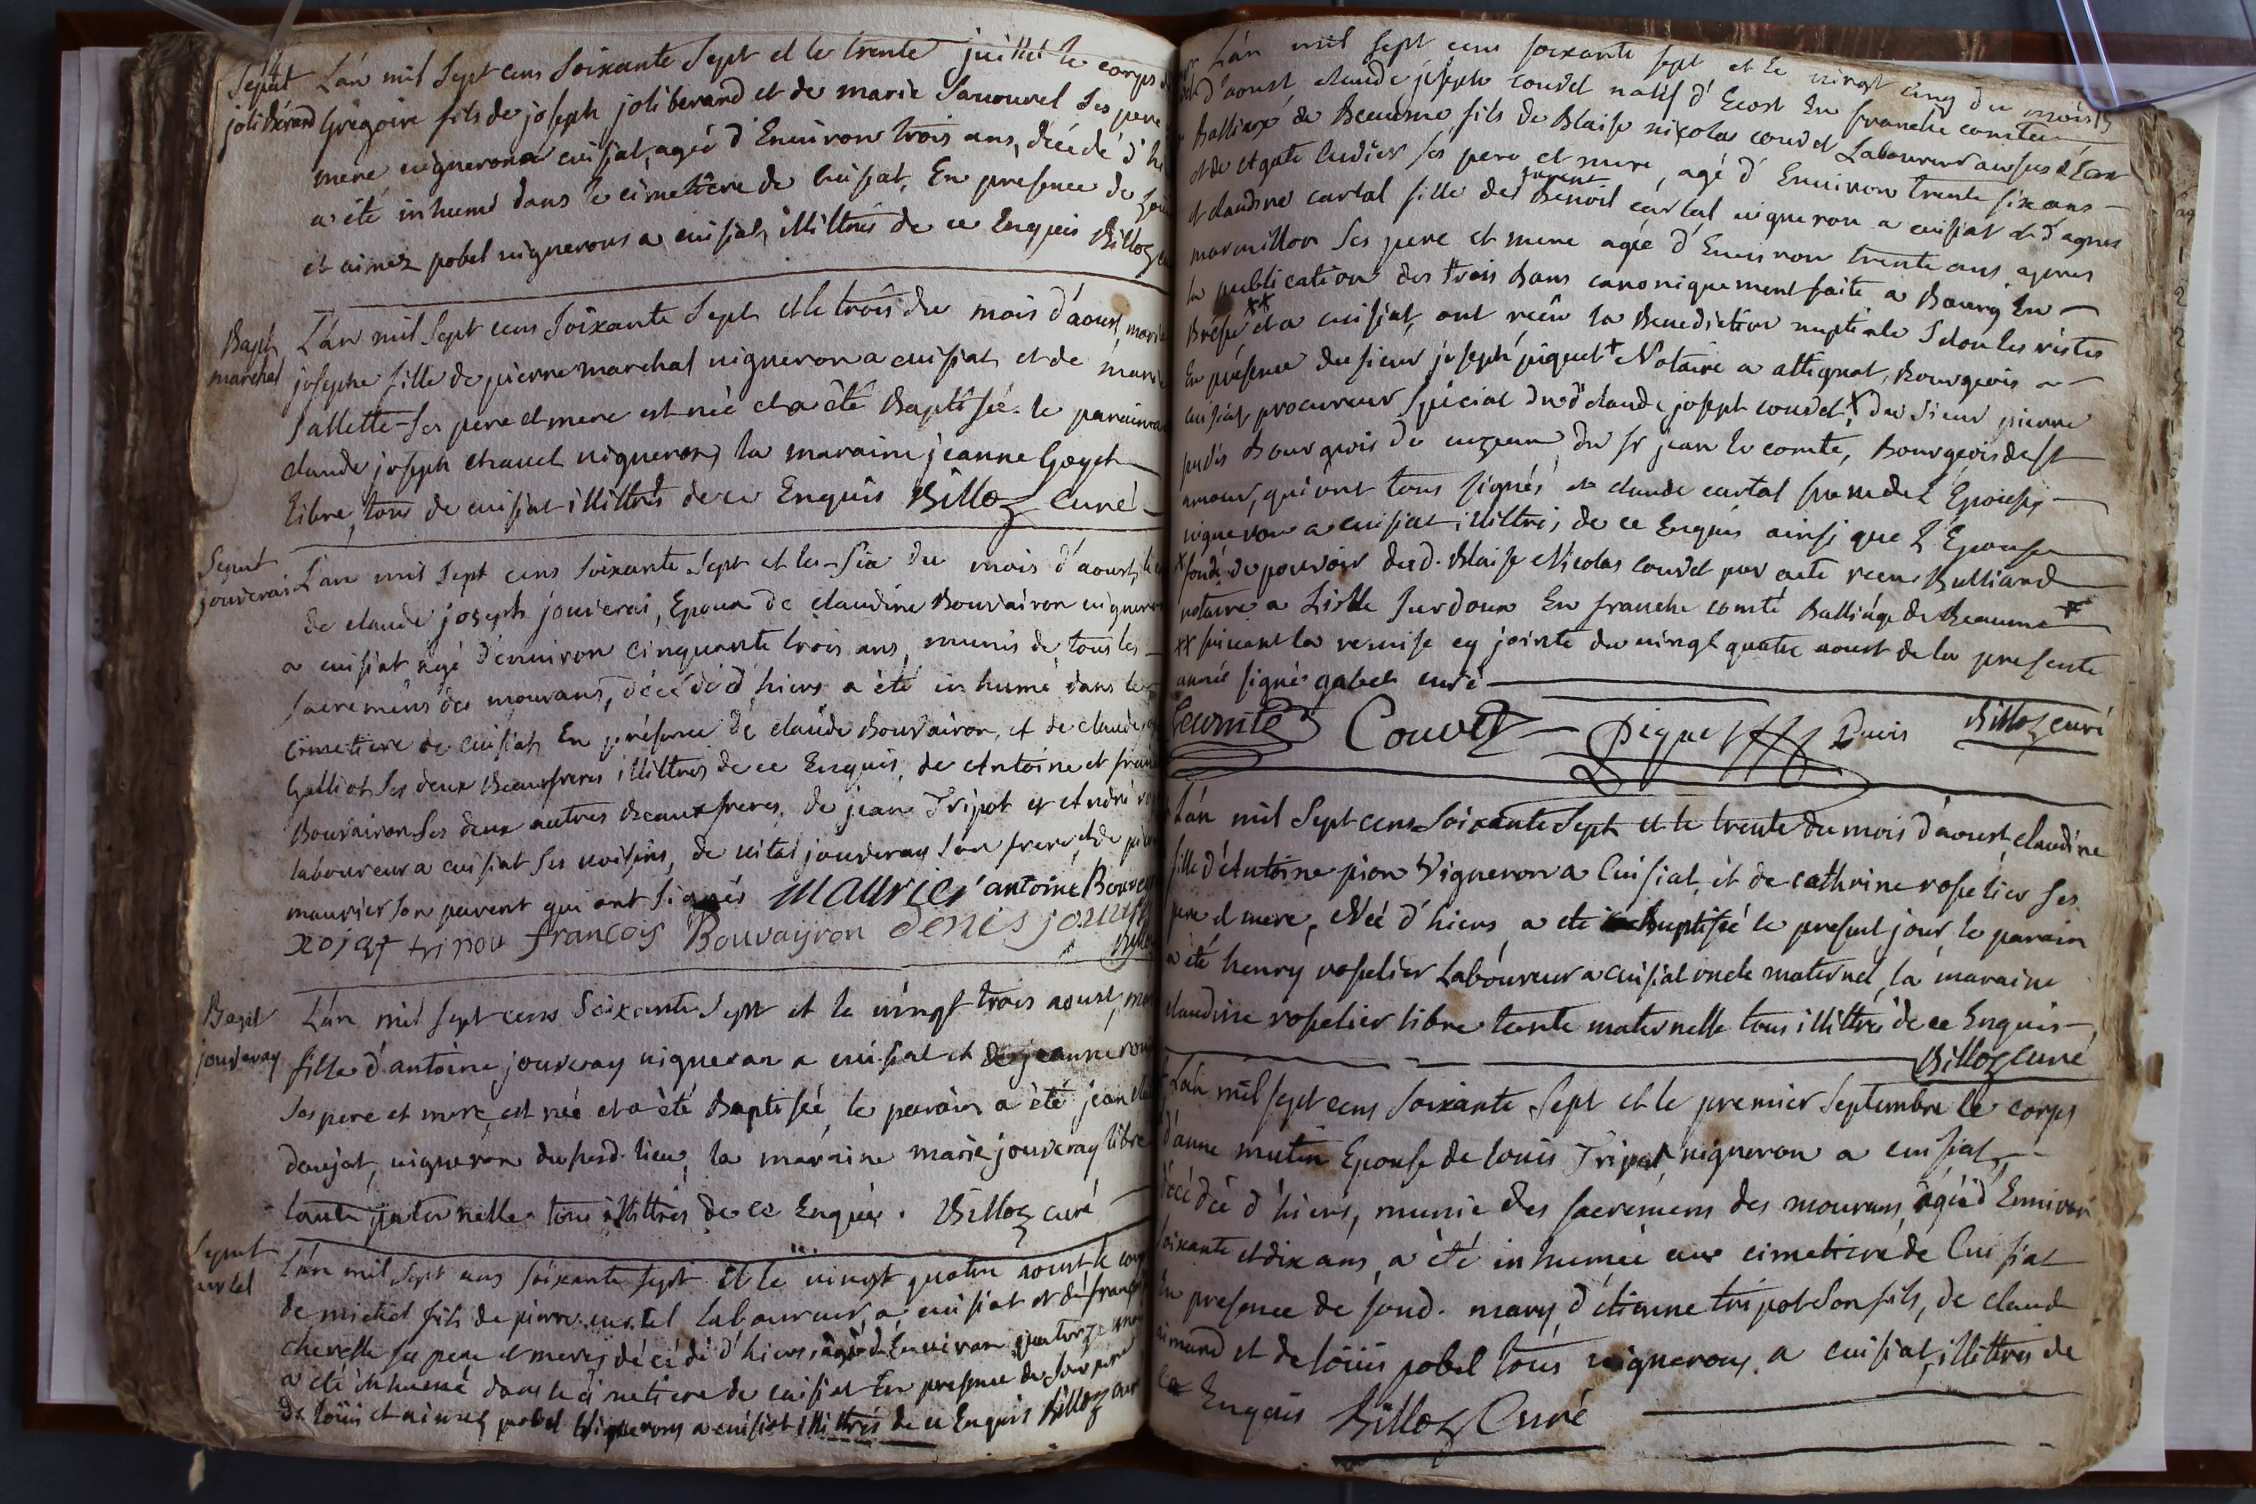 Sepult
joliberand
L'an mil Sept cens Soixante Sept et le trente juillet le corps
Grégoire fils de joseph joliberand et de marie Sauouret Ses pere
mere uigneron a cuisiat, agé d'Enuiron trois ans, décédé d'hi
a été inhumé dans le cimetiere de Cuisiat, En presence de
et aimez pobel uignerons a cuisiat, illittrés de ce Enquis Billoz
Bapt
marchal
L'an mil Sept cens Soixante Sept et le trois du mois d'aoust, marie
josephe fille de pierre marchal uigneron a cuisiat et de marie
Sallette Ses pere et mere est née et a été Baptisée. le parain
claude joseph chauel uigneron, la maraine jeanne Goyet
libre, tous de cuisiat illittrés de ce Enquis Billoz Curé
Sepult
jouverai
L'an mil Sept cens Soixante Sept et le Six du mois d'aoust, le
de claude joseph jouverai, Epoux de claudine Bouvairon uigneron
a cuisiat agé d'enuiron cinquante trois ans, munis de tous les
Sacremens des mourans, décédé d'hiers a été inhumé dans le
cimetiere de Cuisiat En présence de claude Bouvairon, et de claude
Galliot Ses deux Beaufreres illittrés de ce Enquis, de Antoine et fran
Bouvairon Ses deux autres Beauxfreres, de jean Tripot et André
laboureur a cuisiat Ses uoisins, de uital jouveray Son frere, et de
maurier Son parent qui ont Signés maurier antoine Bouvay
tripou francois Bouvayron denis jouve
Bapt
jouveray
L'an mil Sept cens Soixante Sept et le vingt trois aoust,
fille d'antoine jouveray uigneron a cuisiat et de jeanne
Ses pere et mere, est née et a été Baptisée, le parain a été jean
danjat, uigneron du susd. lieu, la maraine marie jouveray libre
tante paternelle tous illittrés de ce Enquis. Billoz curé
Sepult
curtel
L'an mil Sept cens Soixante Sept et le vingt quatre aoust le corp
de michel fils de pierre curtel Laboureur, a cuisiat et de françoi
cherelle Ses pere et mere, décédé d'hiers, agé d'Enuiron quatorze
a été inhumé dans le cimetiere de cuisiat En presence de Son pere
de loüis et aimez pobel uignerons a cuisiat illittrés de ce Enquis Billoz curé
L'an mil Sept cens Soixante Sept et le vingt cinq du mois
d'aoust claude joseph couvet natif d' En franche comté
Balliage de Beaume fils de Blaise nicolas couvet Laboureur
et de Agate Cudier Ses pere et mere, agé d'Enuiron trente six ans
et claudine cartal fille de furent Benoit cartal uigneron a cuisiat et d'agnes
marmillon Ses pere et mere agée d'Enuiron trente ans apres
la publication des trois Bans canoniquement faite a Bourg En
Bresse xx et a cuisiat, ont receu la Benediction nuptiale Selon les ristes
En présence du Sieur joseph piquet + Notaire a attignat, Bourgeois a
cuisiat procureur Spécial du d. claude joseph couvet, x du Sieur pierre
puvis Bourgeois de cuzeau, du Sr jean le comte, Bourgeois de St
amour, qui ont tous Signés et claude cartal frere de l'Epouse
uigneron a cuisiat illittrés de ce Enquis ainsi que l'Epouse
x fondé de pouvoir dud. Blaise Nicolas couvet par acte receu Bulliard
notaire a Lisle Sur doux En franche comté Balliage de Beaume +
xx Suiuant la remise cy jointe du vingt quatre aoust de la presente
année Signé gabet curé
Lecomte Couvet Piquet Puvis Billoz curé
L'an mil Sept cens Soixante Sept et le trente du mois d'aoust, claudine
fille d'Antoine pion Vigneron a Cuisiat, et de cathrine rospelier Ses
pere et mere, Née d'hiers, a été Baptisée le present jour, le parain
a été henry rospelier Laboureur a cuisiat oncle maternel, la maraine
claudine rospelier libre tante maternelle tous illittrés de ce Enquis
Billoz Curé
L'an mil Sept cens Soixante Sept et le premier Septembre le corps
d'anne mutin Epouse de louis Tripot uigneron a cuisiat,
décédée d'hiers, munie des Sacremens des mourans, agée d'Enuiron
Soixante et dix ans, a été inhumée au cimetiere de Cuisiat
En presence de Sond. mary, d'étienne tripot Son fils, de claude
et de loüis pobel tous uignerons a cuisiat, illittrés de
Ce Enquis Billoz Curé